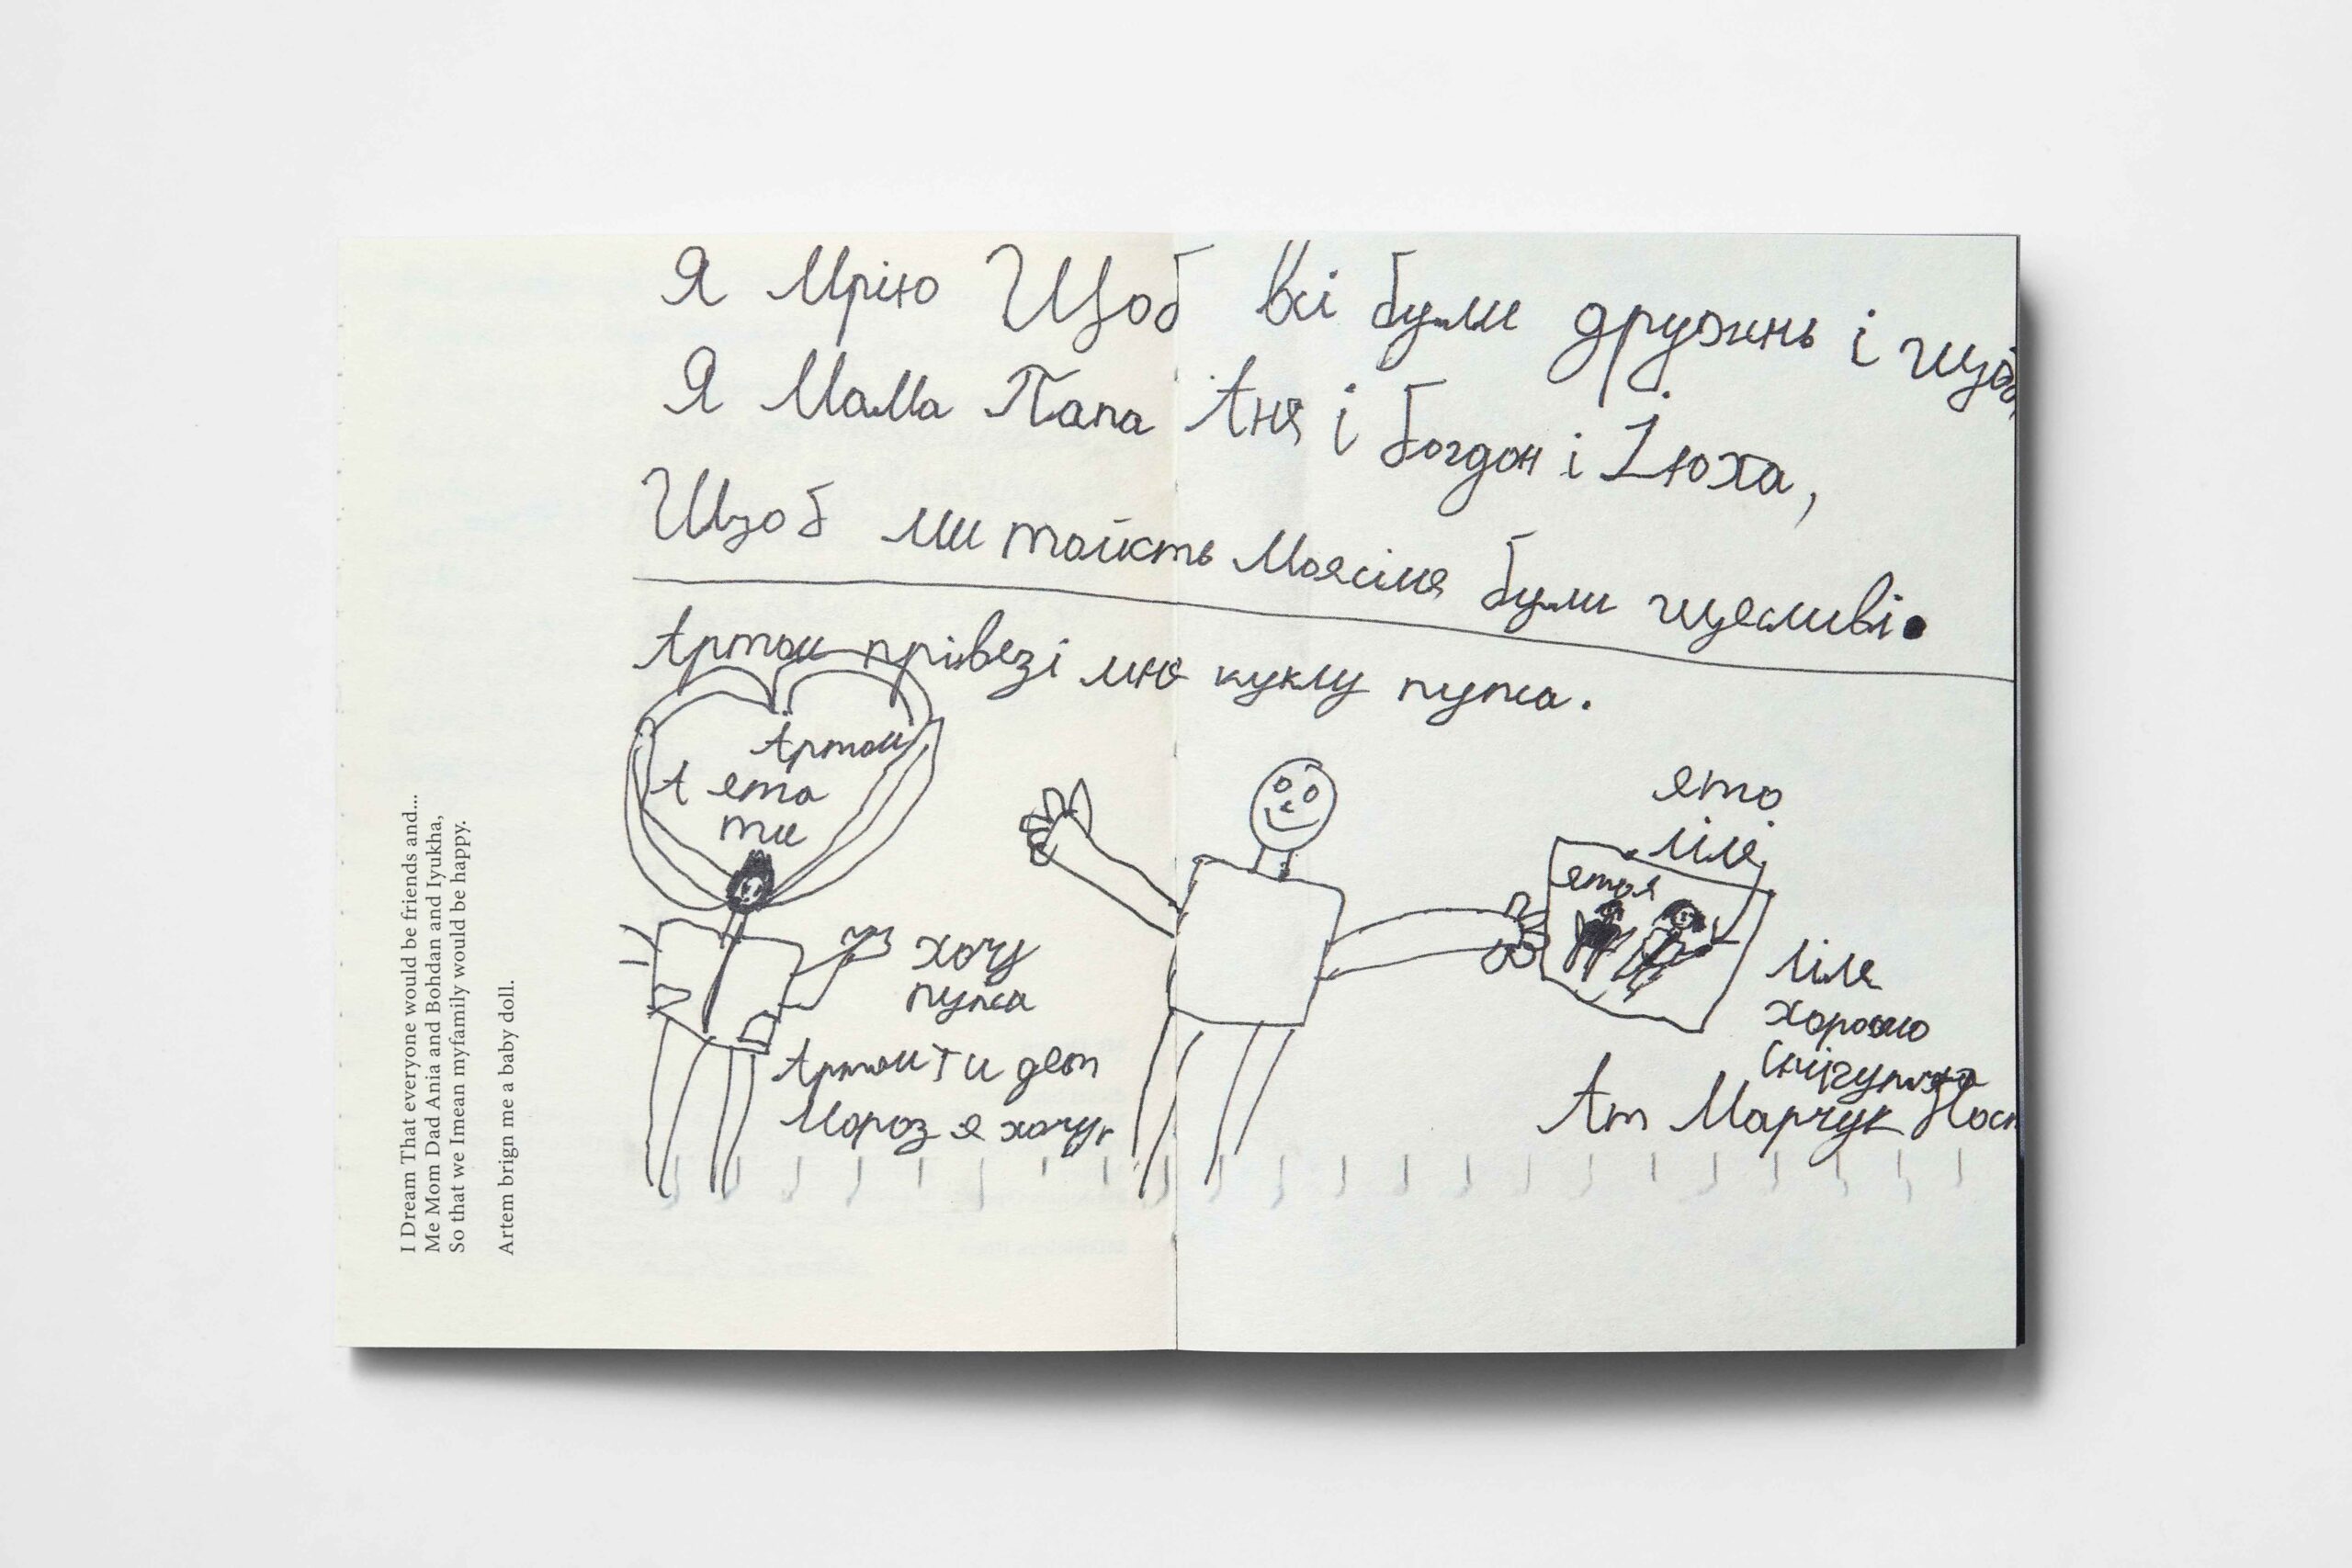 Я Мрію Щоб Всі були дружнь і щоб
Я Мама Папа Аня і богдон і Іюха,
Щоб ми тоїкть Моясімя були щесливі.
Артом прівезі мне куклу пупса.
Артом
А ето
ти
хочу
пупса
Артом Ти дет
Мороз я хочу
ето
Ліля
етоя
Ліля
хорошо
Снігурка
Ат Марчук Наст
I Dream That everyone would be friends and...
Me Mom Dad Ania and Bohdan and Iyukha,
So that we Imean myfamily would be happy.
Artem brign me a baby doll.